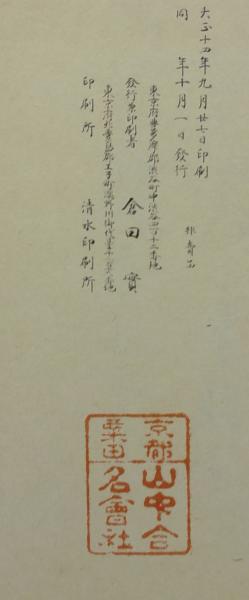 大正十四年九月廿七日印刷
同　年十月一日發行
非賣品
東京府豊多摩郡渋谷町中渋谷四百十三番地
發行兼印刷者　倉田實
東京府北豊島郡王子町
印刷所　清水印刷所
京都山中合
粟田名會社